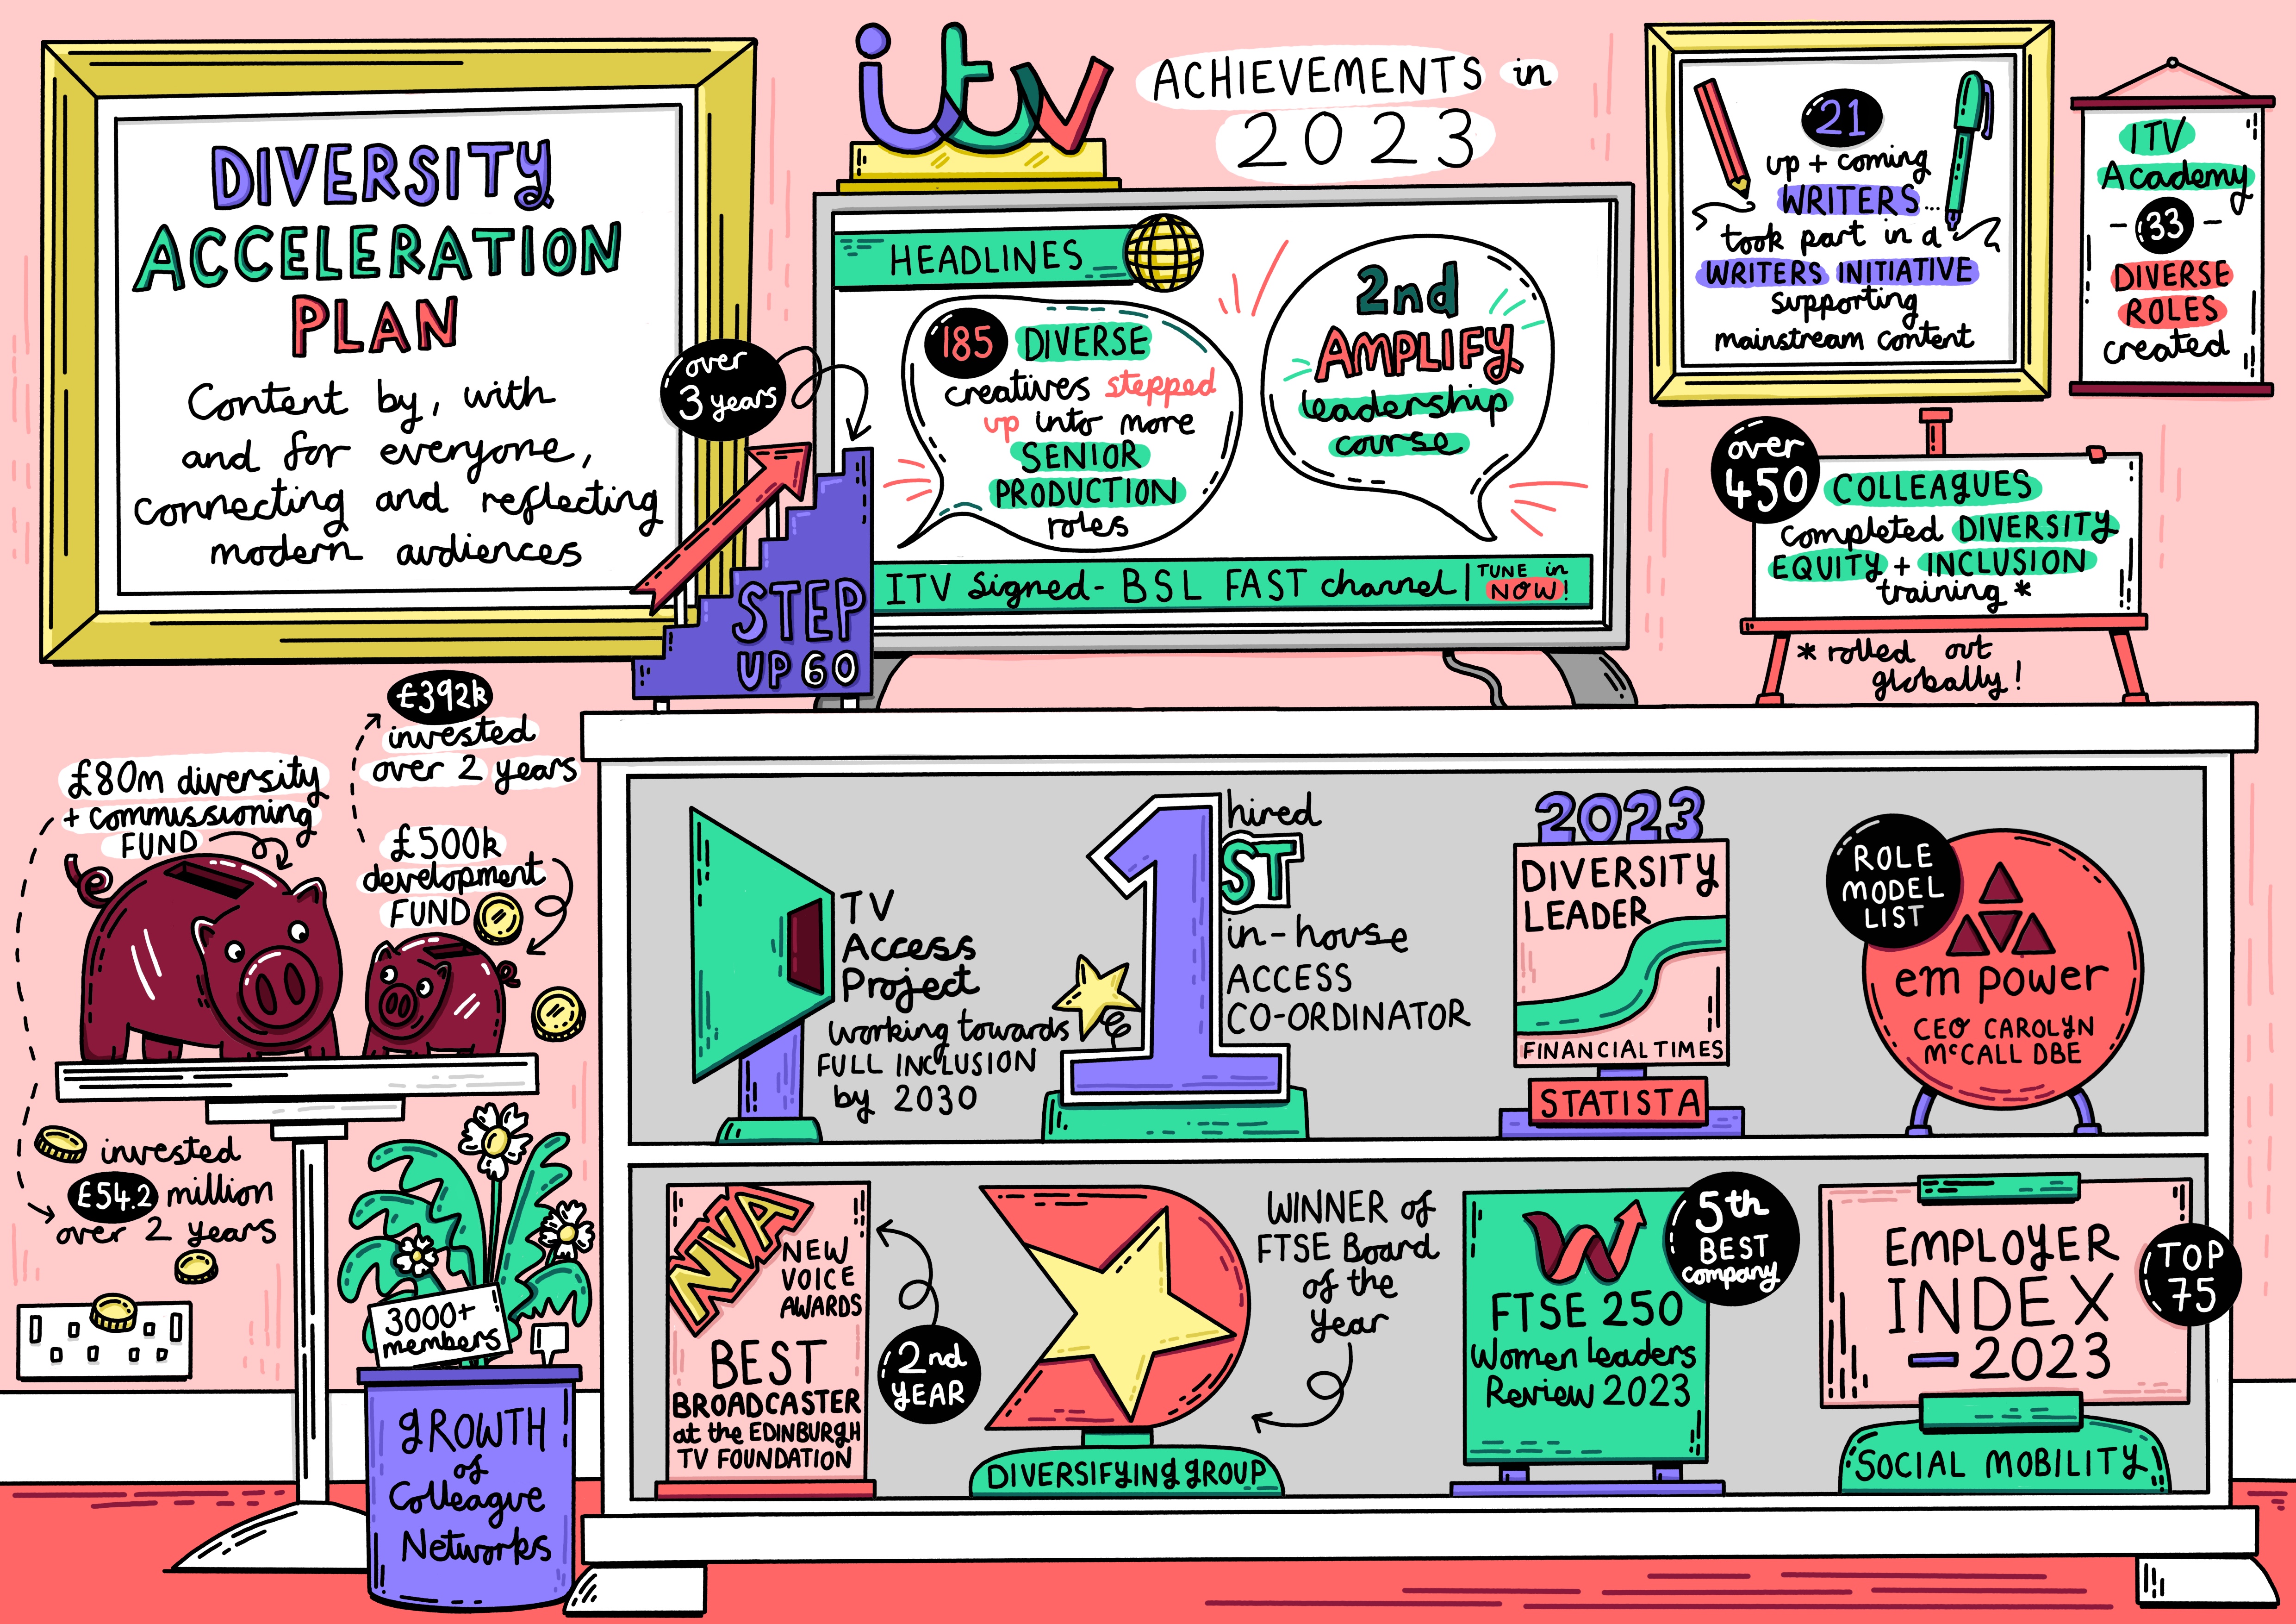 itv
ACHIEVEMENTS in
2023
DIVERSITY
ACCELERATION
PLAN
Content by, with
and for everyone,
connecting and reflecting
modern audiences
over
3 years
STEP
UP 60
HEADLINES
185 DIVERSE
creatives stepped
up into more
SENIOR
PRODUCTION
roles
2nd
AMPLIFY
leadership
course
ITV Signed - BSL FAST channel | TUNE in
NOW!
21
up + coming
WRITERS...
took part in a
WRITERS INITIATIVE
supporting
mainstream content
ITV
Academy
- 33 -
DIVERSE
ROLES
created
over
450
COLLEAGUES
completed DIVERSITY
EQUITY + INCLUSION
training *
* rolled out
globally!
£80m diversity
+ commissioning
FUND
invested
£54.2 million
over 2 years
£392k
invested
over 2 years
£500k
development
FUND
3000+
members
GROWTH
of
Colleague
Networks
TV
Access
Project
working towards
FULL INCLUSION
by 2030
hired
1ST
in-house
ACCESS
CO-ORDINATOR
2023
DIVERSITY
LEADER
FINANCIAL TIMES
STATISTA
ROLE
MODEL
LIST
em power
CEO CAROLYN
McCALL DBE
NVA
NEW
VOICE
AWARDS
BEST
BROADCASTER
at the EDINBURGH
TV FOUNDATION
2nd
YEAR
WINNER of
FTSE Board
of the
Year
DIVERSIFYING GROUP
5th
BEST
company
FTSE 250
Women Leaders
Review 2023
EMPLOYER
INDEX
- 2023
TOP
75
SOCIAL MOBILITY